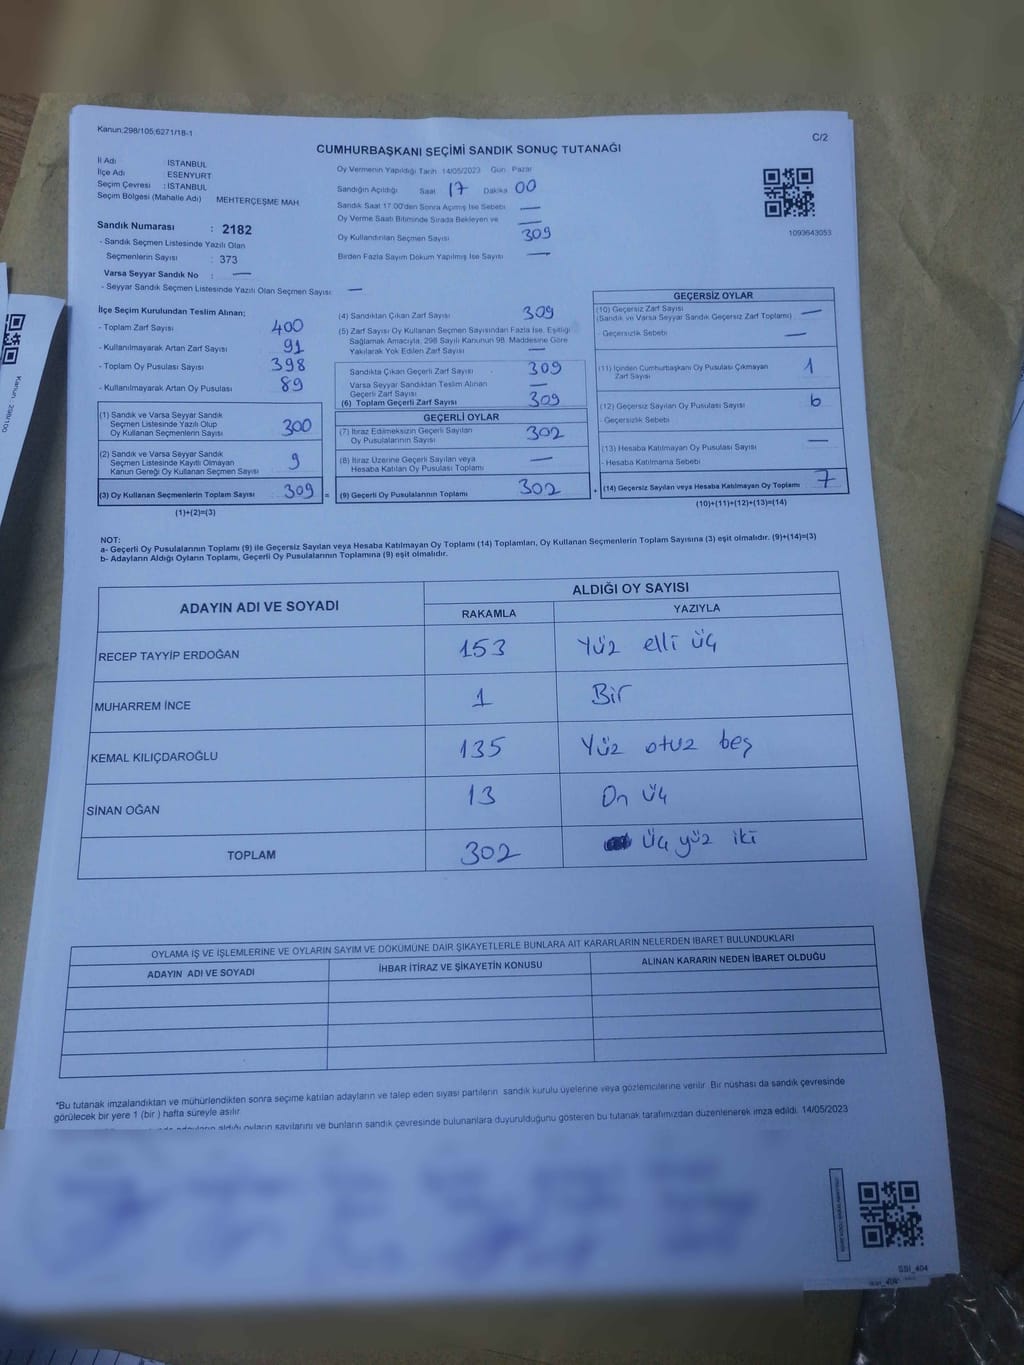 Kanun:298/105;6271/18-1
C/2
CUMHURBAŞKANI SEÇİMİ SANDIK SONUÇ TUTANAĞI
İl Adı : İSTANBUL
İlçe Adı : ESENYURT
Seçim Çevresi : İSTANBUL
Seçim Bölgesi (Mahalle Adı) MEHTERÇEŞME MAH.
Sandık Numarası : 2182
- Sandık Seçmen Listesinde Yazılı Olan
Seçmenlerin Sayısı : 373
Varsa Seyyar Sandık No : —
- Seyyar Sandık Seçmen Listesinde Yazılı Olan Seçmen Sayısı: —
Oy Vermenin Yapıldığı Tarih 14/05/2023 Gün Pazar
Sandığın Açıldığı Saat 17 Dakika 00
Sandık Saat 17.00'den Sonra Açılmış İse Sebebi —
Oy Verme Saati Bitiminde Sırada Bekleyen ve —
Oy Kullandırılan Seçmen Sayısı 309
Birden Fazla Sayım Döküm Yapılmış İse Sayısı —
1093643053
İlçe Seçim Kurulundan Teslim Alınan;
- Toplam Zarf Sayısı 400
- Kullanılmayarak Artan Zarf Sayısı 91
- Toplam Oy Pusulası Sayısı 398
- Kullanılmayarak Artan Oy Pusulası 89
(1) Sandık ve Varsa Seyyar Sandık
Seçmen Listesinde Yazılı Olup
Oy Kullanan Seçmenlerin Sayısı 300
(2) Sandık ve Varsa Seyyar Sandık
Seçmen Listesinde Kayıtlı Olmayan
Kanun Gereği Oy Kullanan Seçmen Sayısı 9
(3) Oy Kullanan Seçmenlerin Toplam Sayısı 309 =
(1)+(2)=(3)
(4) Sandıktan Çıkan Zarf Sayısı 309
(5) Zarf Sayısı Oy Kullanan Seçmen Sayısından Fazla İse, Eşitliği
Sağlamak Amacıyla, 298 Sayılı Kanunun 98. Maddesine Göre
Yakılarak Yok Edilen Zarf Sayısı —
Sandıkta Çıkan Geçerli Zarf Sayısı 309
Varsa Seyyar Sandıktan Teslim Alınan
Geçerli Zarf Sayısı —
(6) Toplam Geçerli Zarf Sayısı 309
GEÇERLİ OYLAR
(7) İtiraz Edilmeksizin Geçerli Sayılan
Oy Pusulalarının Sayısı 302
(8) İtiraz Üzerine Geçerli Sayılan veya
Hesaba Katılan Oy Pusulası Toplamı —
(9) Geçerli Oy Pusulalarının Toplamı 302 +
GEÇERSİZ OYLAR
(10) Geçersiz Zarf Sayısı
(Sandık ve Varsa Seyyar Sandık Geçersiz Zarf Toplamı) —
- Geçersizlik Sebebi —
(11) İçinden Cumhurbaşkanı Oy Pusulası Çıkmayan
Zarf Sayısı 1
(12) Geçersiz Sayılan Oy Pusulası Sayısı 6
- Geçersizlik Sebebi
(13) Hesaba Katılmayan Oy Pusulası Sayısı —
- Hesaba Katılmama Sebebi
(14) Geçersiz Sayılan veya Hesaba Katılmayan Oy Toplamı 7
(10)+(11)+(12)+(13)=(14)
NOT:
a- Geçerli Oy Pusulalarının Toplamı (9) ile Geçersiz Sayılan veya Hesaba Katılmayan Oy Toplamı (14) Toplamları, Oy Kullanan Seçmenlerin Toplam Sayısına (3) eşit olmalıdır. (9)+(14)=(3)
b- Adayların Aldığı Oyların Toplamı, Geçerli Oy Pusulalarının Toplamına (9) eşit olmalıdır.
ADAYIN ADI VE SOYADI
ALDIĞI OY SAYISI
RAKAMLA YAZIYLA
RECEP TAYYİP ERDOĞAN 153 Yüz elli üç
MUHARREM İNCE 1 Bir
KEMAL KILIÇDAROĞLU 135 Yüz otuz beş
SİNAN OĞAN 13 On üç
TOPLAM 302 üç yüz iki
OYLAMA İŞ VE İŞLEMLERİNE VE OYLARIN SAYIM VE DÖKÜMÜNE DAİR ŞİKAYETLERLE BUNLARA AİT KARARLARIN NELERDEN İBARET BULUNDUKLARI
ADAYIN ADI VE SOYADI İHBAR İTİRAZ VE ŞİKAYETİN KONUSU ALINAN KARARIN NEDEN İBARET OLDUĞU
*Bu tutanak imzalandıktan ve mühürlendikten sonra seçime katılan adayların ve talep eden siyasi partilerin sandık kurulu üyelerine veya gözlemcilerine verilir. Bir nüshası da sandık çevresinde
görülecek bir yere 1 (bir) hafta süreyle asılır.
adayların aldığı oyların sayılarını ve bunların sandık çevresinde bulunanlara duyurulduğunu gösteren bu tutanak tarafımızdan düzenlenerek imza edildi. 14/05/2023
SSI_404
Kanun: 298/100